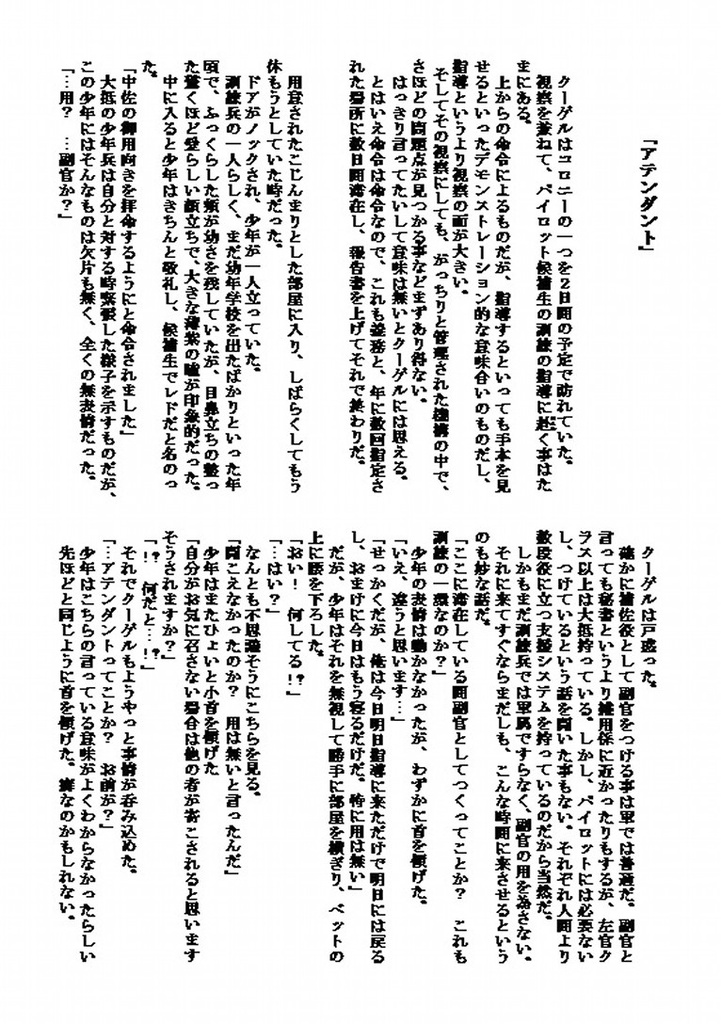 「アテンダント」
クーゲルはコロニーの一つを２日間の予定で訪れていた。
視察を兼ねて、パイロット候補生の訓練の指導に赴く事はた
まにある。
上からの命令によるものだが、指導するといっても手本を見
せるといったデモンストレーション的な意味合いのものだし、
指導というより視察の面が大きい。
そしてその視察にしても、がっちりと管理された機構の中で、
さほどの問題点が見つかる事などまずあり得ない。
はっきり言ってたいして意味は無いとクーゲルには思える。
とはいえ命令は命令なので、これも義務と、年に数回指定さ
れた場所に数日間滞在し、報告書を上げてそれで終わりだ。
用意されたこじんまりとした部屋に入り、しばらくしてもう
休もうとしていた時だった。
ドアがノックされ、少年が一人立っていた。
訓練兵の一人らしく、まだ幼年学校を出たばかりといった年
頃で、ふっくらした頬が幼さを残していたが、目鼻立ちの整っ
た驚くほど愛らしい顔立ちで、大きな薄紫の瞳が印象的だった。
中に入ると少年はきちんと敬礼し、候補生でレドだと名のっ
た。
「中佐の御用向きを拝命するようにと命令されました」
大抵の少年兵は自分と対する時緊張した様子を示すものだが、
この少年にはそんなものは欠片も無く、全くの無表情だった。
「…用？　…副官か？」
クーゲルは戸惑った。
確かに補佐役として副官をつける事は軍では普通だ。副官と
言っても秘書というより雑用係に近かったりもするが、左官ク
ラス以上は大抵持っている。しかし、パイロットには必要ない
し、つけているという話を聞いた事もない。それぞれ人間より
数段役に立つ支援システムを持っているのだから当然だ。
しかもまだ訓練兵では軍属ですらなく、副官の用を為さない。
それに来てすぐならまだしも、こんな時間に来させるという
のも妙な話だ。
「ここに滞在している間副官としてつくってことか？　これも
訓練の一環なのか？」
少年の表情は動かなかったが、わずかに首を傾げた。
「いえ、違うと思います…」
「せっかくだが、俺は今日明日指導に来ただけで明日には戻る
し、おまけに今日はもう寝るだけだ。特に用は無い」
だが、少年はそれを無視して勝手に部屋を横ぎり、ベットの
上に腰を下ろした。
「おい！　何してる!?」
「…はい？」
なんとも不思議そうにこちらを見る。
「聞こえなかったのか？　用は無いと言ったんだ」
少年はまたひょいと小首を傾げた
「自分がお気に召さない場合は他の者が寄こされると思います
そうされますか？」
「！？　何だと…!?」
それでクーゲルもようやっと事情が呑み込めた。
「…アテンダントってことか？　お前が？」
少年はこちらの言っている意味がよくわからなかったらしい
先ほどと同じように首を傾げた。癖なのかもしれない。